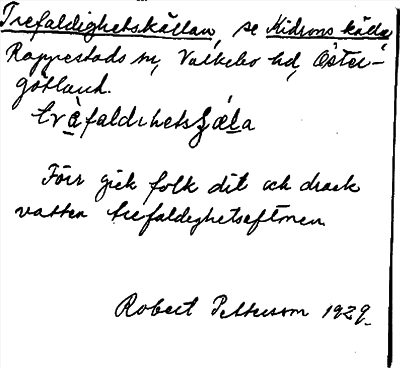 Trefaldighetskällan, se Kidrons källa
Rappestads sn, Valkebo hd, Öster-
götland.
Förr gick folk dit och drack
vatten trefaldighetsaftonen
Robert Pettersson 1929.